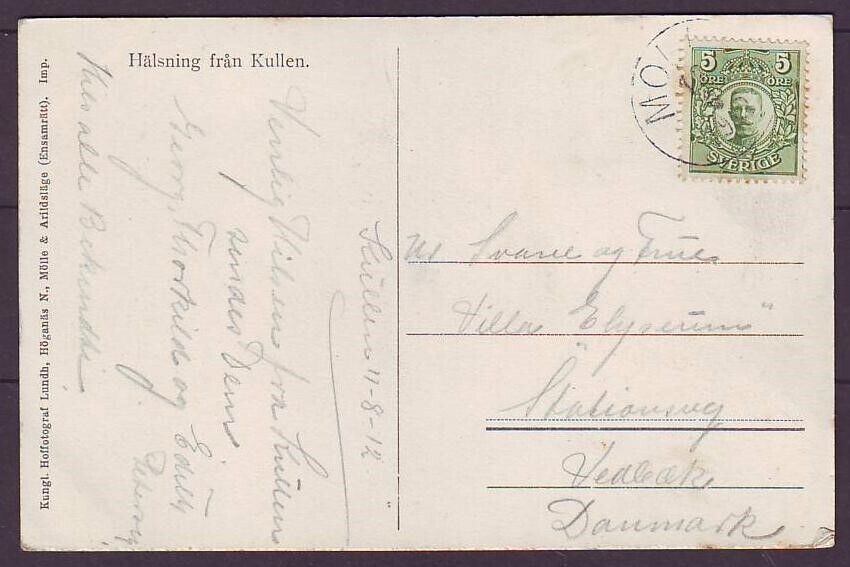 Hälsning från Kullen.
Kungl. Hoffotograf Lundh, Höganäs N., Mölle & Arildsläge (Ensamrätt). Imp.
Kullen 11-8-12
Venlig Hilsen fra Kullen
sendes Dem
Georg, Thorkild og Edith
Petersen
Hils alle Bekendte
MÖL
5 5
ÖRE ÖRE
SVERIGE
Hr Svane og Frue
Villa "Elyseum"
Stationsvej
Vedbæk
Danmark